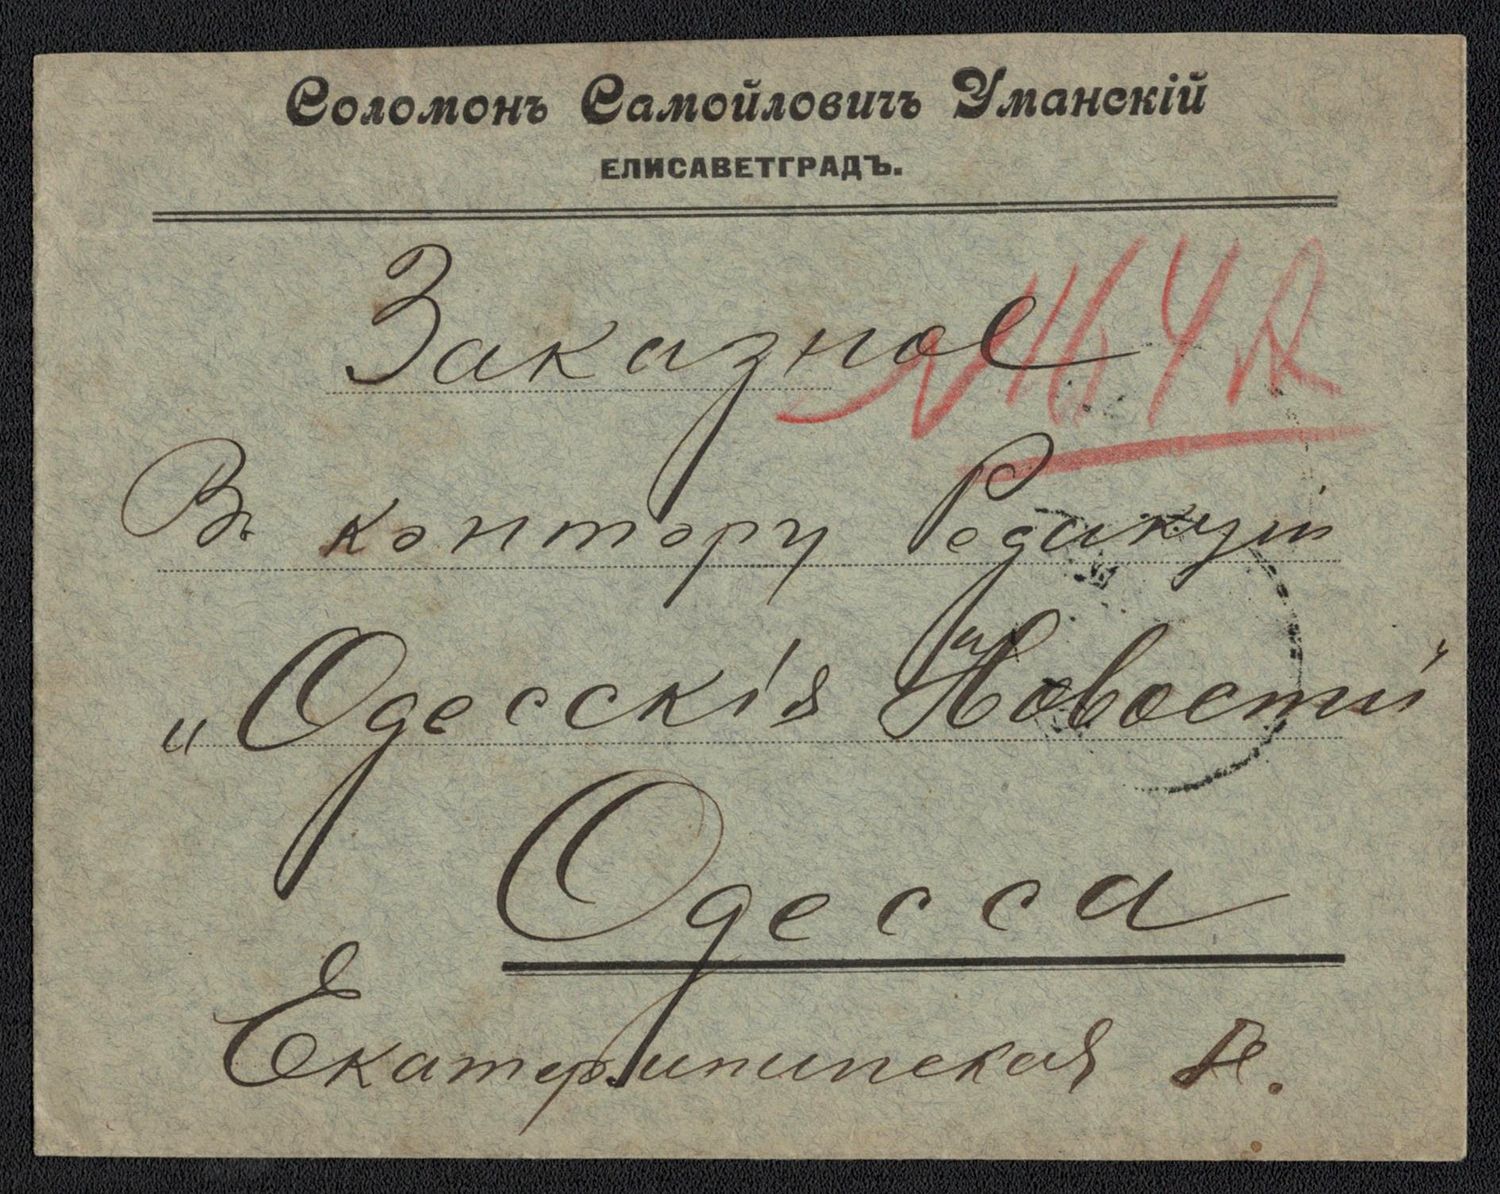 Соломонъ Самойловичъ Уманскій
ЕЛИСАВЕТГРАДЪ.
Заказное
Въ контору Редакціи
„Одесскія Новости"
Одесса
Екатерининская